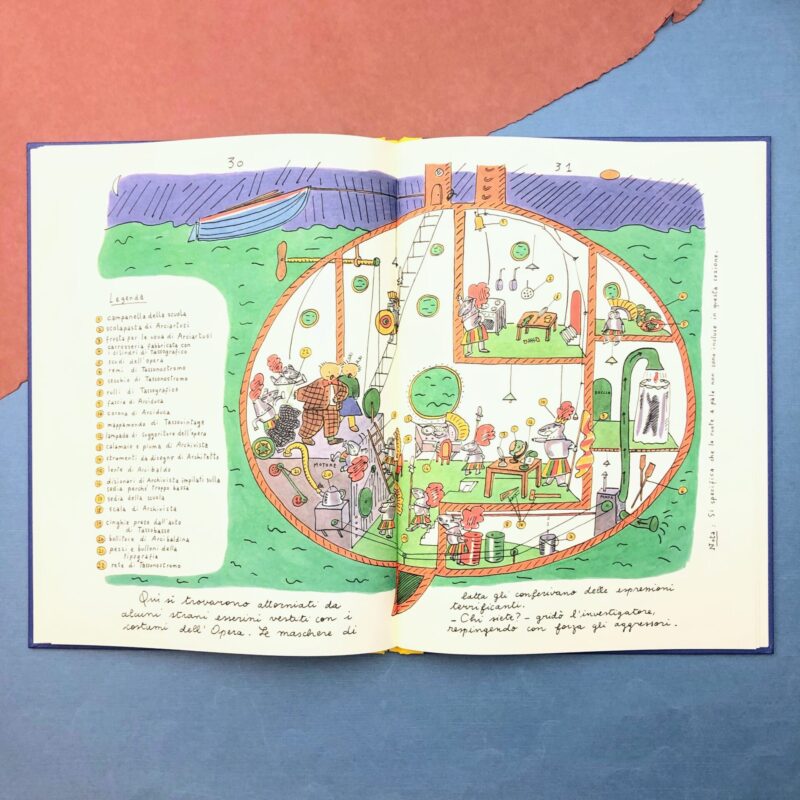 30
31
Legenda
1 campanella della scuola
2 scolapasta di Arciartusi
3 frusta per le uova di Arciartusi
4 carrozzeria fabbricata con
i cilindri di Tassografico
5 scudi dell'opera
6 remi di Tassonostromo
7 secchio di Tassonostromo
8 rulli di Tassografico
9 fascia di Arciduca
10 corona di Arciduca
11 mappamondo di Tassovintage
12 lampada di Suggeritore dell'opera
13 calamaio e piuma di Archivista
14 strumenti da disegno di Architetto
15 lente di Arcibaldo
16 dizionari di Archivista impilati sulla
sedia perché troppo bassa
17 sedia della scuola
18 scala di Archivista
19 cinghie prese dall'auto
di Tassobasso
20 bollitore di Arcibaldina
21 pezzi e bulloni della
tipografia
22 rete di Tassonostromo
MOTORE
Nota: Si specifica che le ruote a pale non sono incluse in questa sezione.
Qui si trovarono attorniati da
alcuni strani esserini vestiti con i
costumi dell'Opera. Le maschere di
latta gli conferivano delle espressioni
terrificanti.
- Chi siete? - gridò l'investigatore,
respingendo con forza gli aggressori.